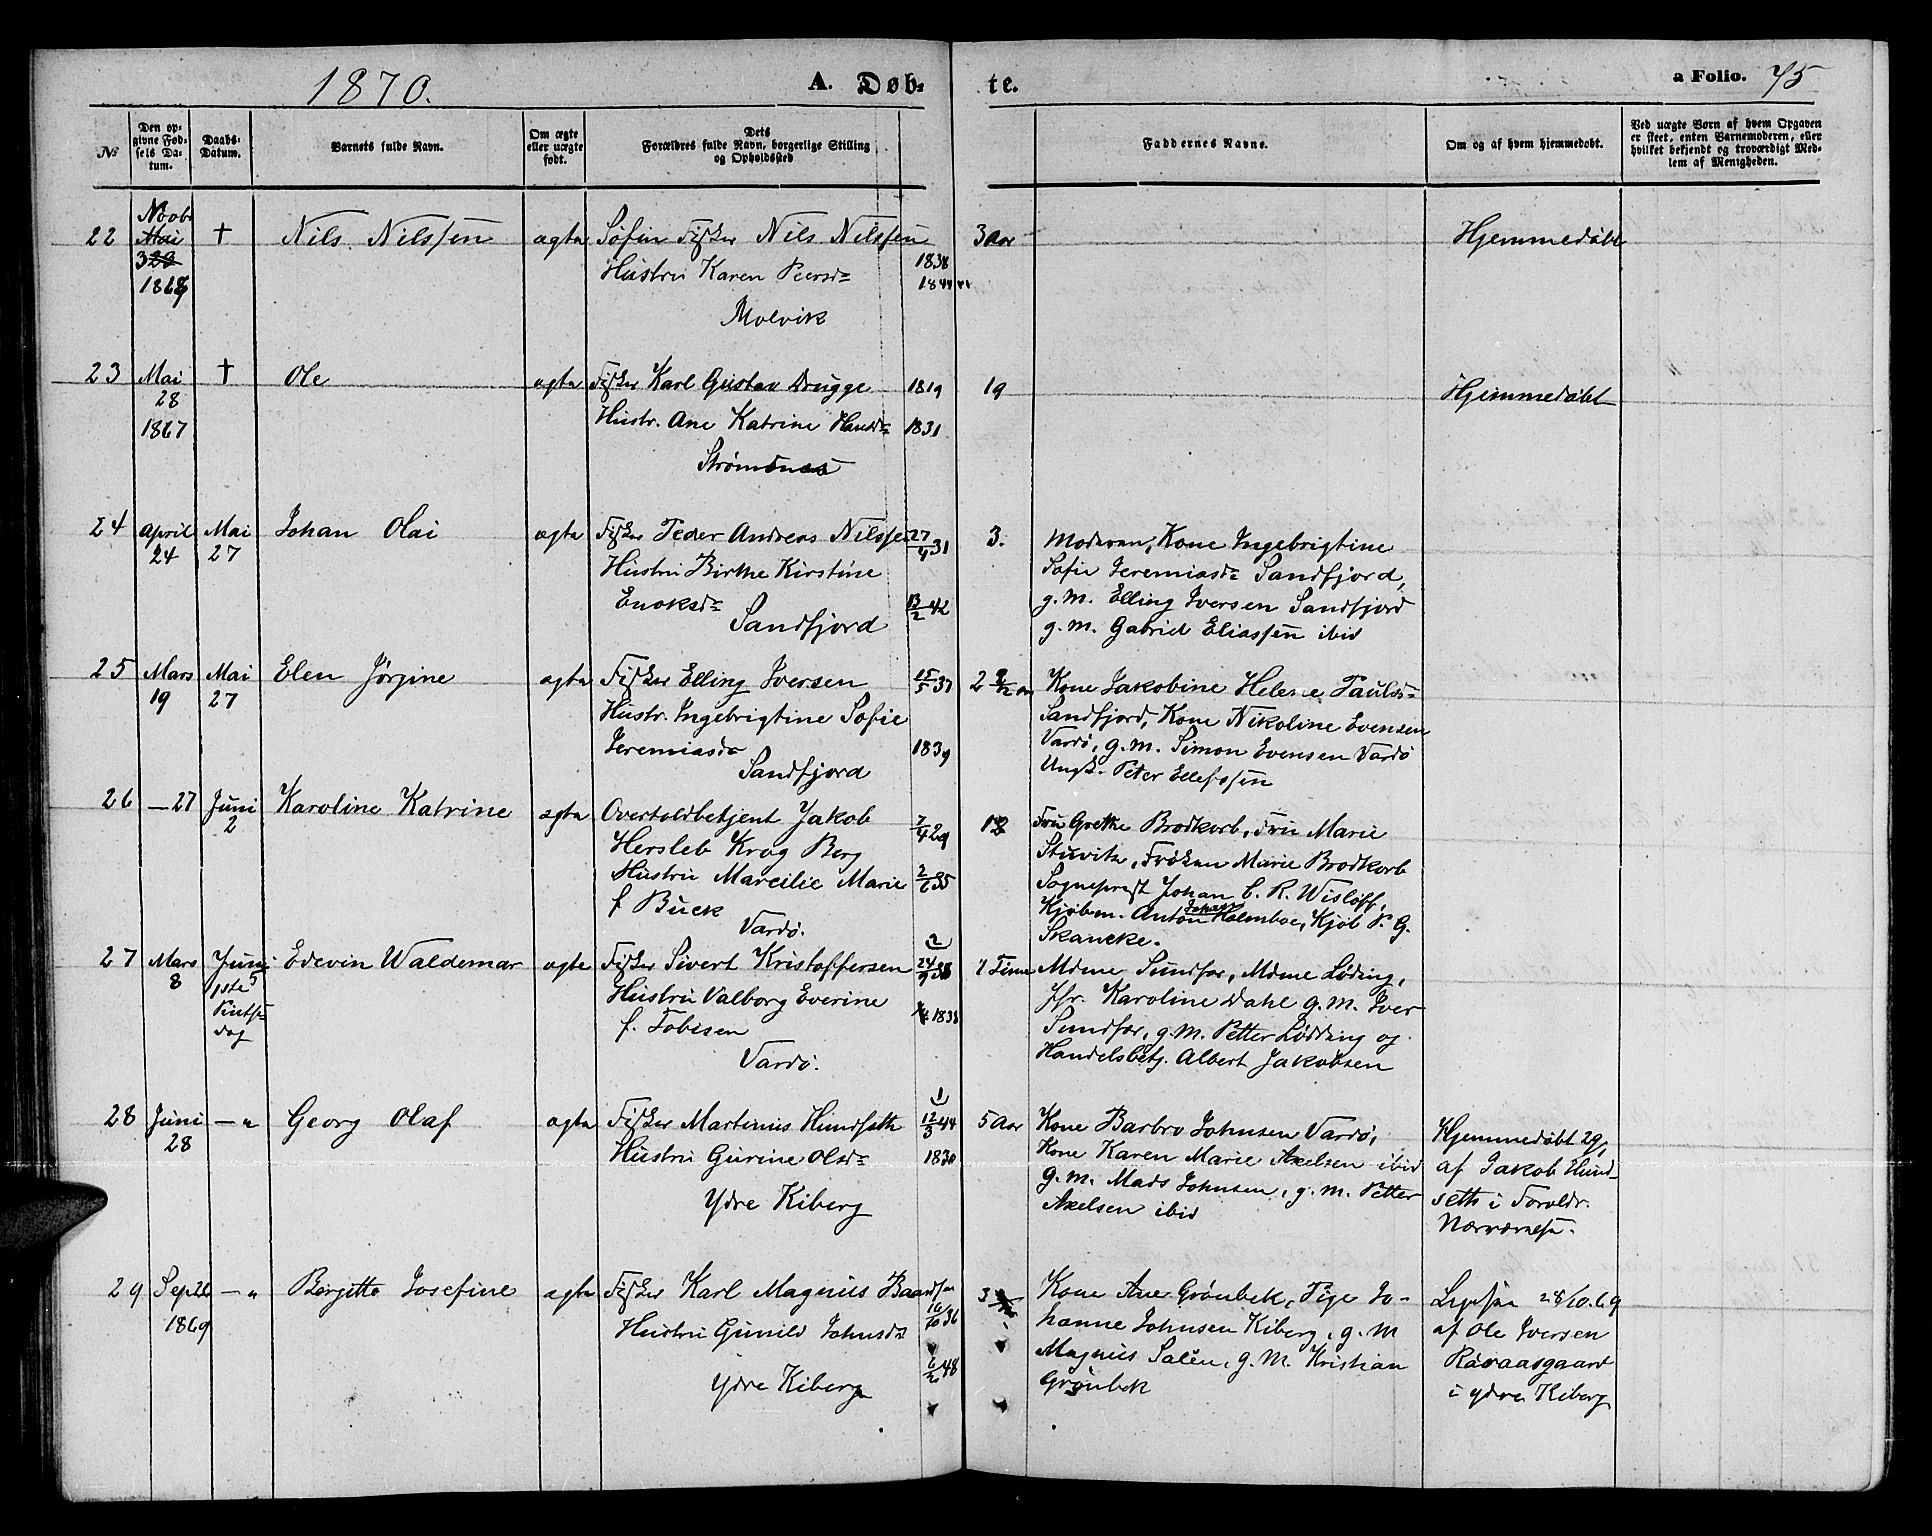 1870.
A. Døb-
te.
a Folio. 75
No
Den op-
givne Fød-
sels Da-
tum.
Daabs-
Datum.
Barnets fulde Navn.
Om ægte
eller uægte
født.
Dets
Forældres fulde Navn, borgerlige Stilling
og Opholdssted
Faddernes Navne.
Om og af hvem hjemmedøbt.
Ved uægte Børn af hvem Opgaven
er skeet, enten Barnemoderen, eller
hvilket bekjendt og troværdigt Med-
lem af Menigheden.
22
Novb
Mai
1869
†
Nils Nilssen
ægte
Søfin Fisker Nils Nilssen
1838
Hustru Karen Peersdr
1844
Molvik
3 Aar
Hjemmedøbt
23
Mai
28
1867
†
Ole
ægte
Fisker Karl Gustav Drugge
1819
Hustr. Ane Katrine Hansdr
1831
Strømsnæs
19
Hjemmedøbt
24
April
24
Mai
27
Johan Olai
ægte
Fisker Peder Andreas Nilssen
27/9 31
Hustru Birthe Kirstine
Enoksdr
13/2 42
Sandfjord
3.
Moderen, Kone Ingebrigtine
Sofie Jeremiasdr Sandfjord,
g. m. Elling Iversen Sandfjord
g. m. Gabriel Eliassen ibid
25
Mars
19
Mai
27
Elen Jørgine
ægte
Fisker Elling Iversen
15/5 37
Hustr. Ingebrigtine Sofie
Jeremiasdr
1839
Sandfjord
Kone Jakobine Helene Paulsdr
Sandfjord, Kone Nikoline Evensen
Vardø, g. m. Simon Evensen Vardø
Ungk. Peter Ellefssen
26
— 27
Juni
2
Karoline Katrine
ægte
Overtoldbetjent Jakob
7/4 29
Hersleb Krog Berg
Hustru Marcilie Marie
2/6 35
f. Buck
Vardø.
12
Fru Grethe Brodkorb, Fru Marie
Stuvitz, Frøken Marie Brodkorb
Sogneprest Johan C. R. Wisløff,
Kjøbm. Anton Johan Holmboe, Kjøb P. G.
Skancke.
27
Mars
8
Juni
5
1ste
Pintse
dag
Edevin Waldemar
ægte
Fisker Sivert Kristoffersen
2
24/9 38
Hustru Valborg Everine
1838
f. Tobisen
Vardø.
Mdme Sundfær, Mdme Lóding,
Jfr. Karoline Dahl g. m. Iver
Sundfær, g. m. Petter Lødding og
Handelsbetj. Albert Jakobsen
28
Juni
28
— "
Georg Olaf
ægte
Fisker Martinus Hundseth
1
12/3 44
Hustru Gurine Olsdr
1830
Ydre Kiberg
5 Aar
Kone Barbro Johnsen Vardø,
Kone Karen Marie Axelsen ibid
g. m. Mads Johnsen, g. m. Petter
Axelsen ibid
Hjemmedøbt 29/
af Jakob Hund-
seth i Foreldr.
Nærværelse.
29
Sep 28
1869
— "
Birgitte Josefine
ægte
Fisker Karl Magnus Baardsen
16/10 36
Hustru Gunild Johnsdr
6/2 48
Ydre Kiberg
3
Kone Ane Grönbek, Pige Jo-
hanne Johnsen Kiberg, g. m
Magnus Salén, g. m. Kristian
Grönbek
28/10. 69
af Ole Iversen
i ydre Kiberg